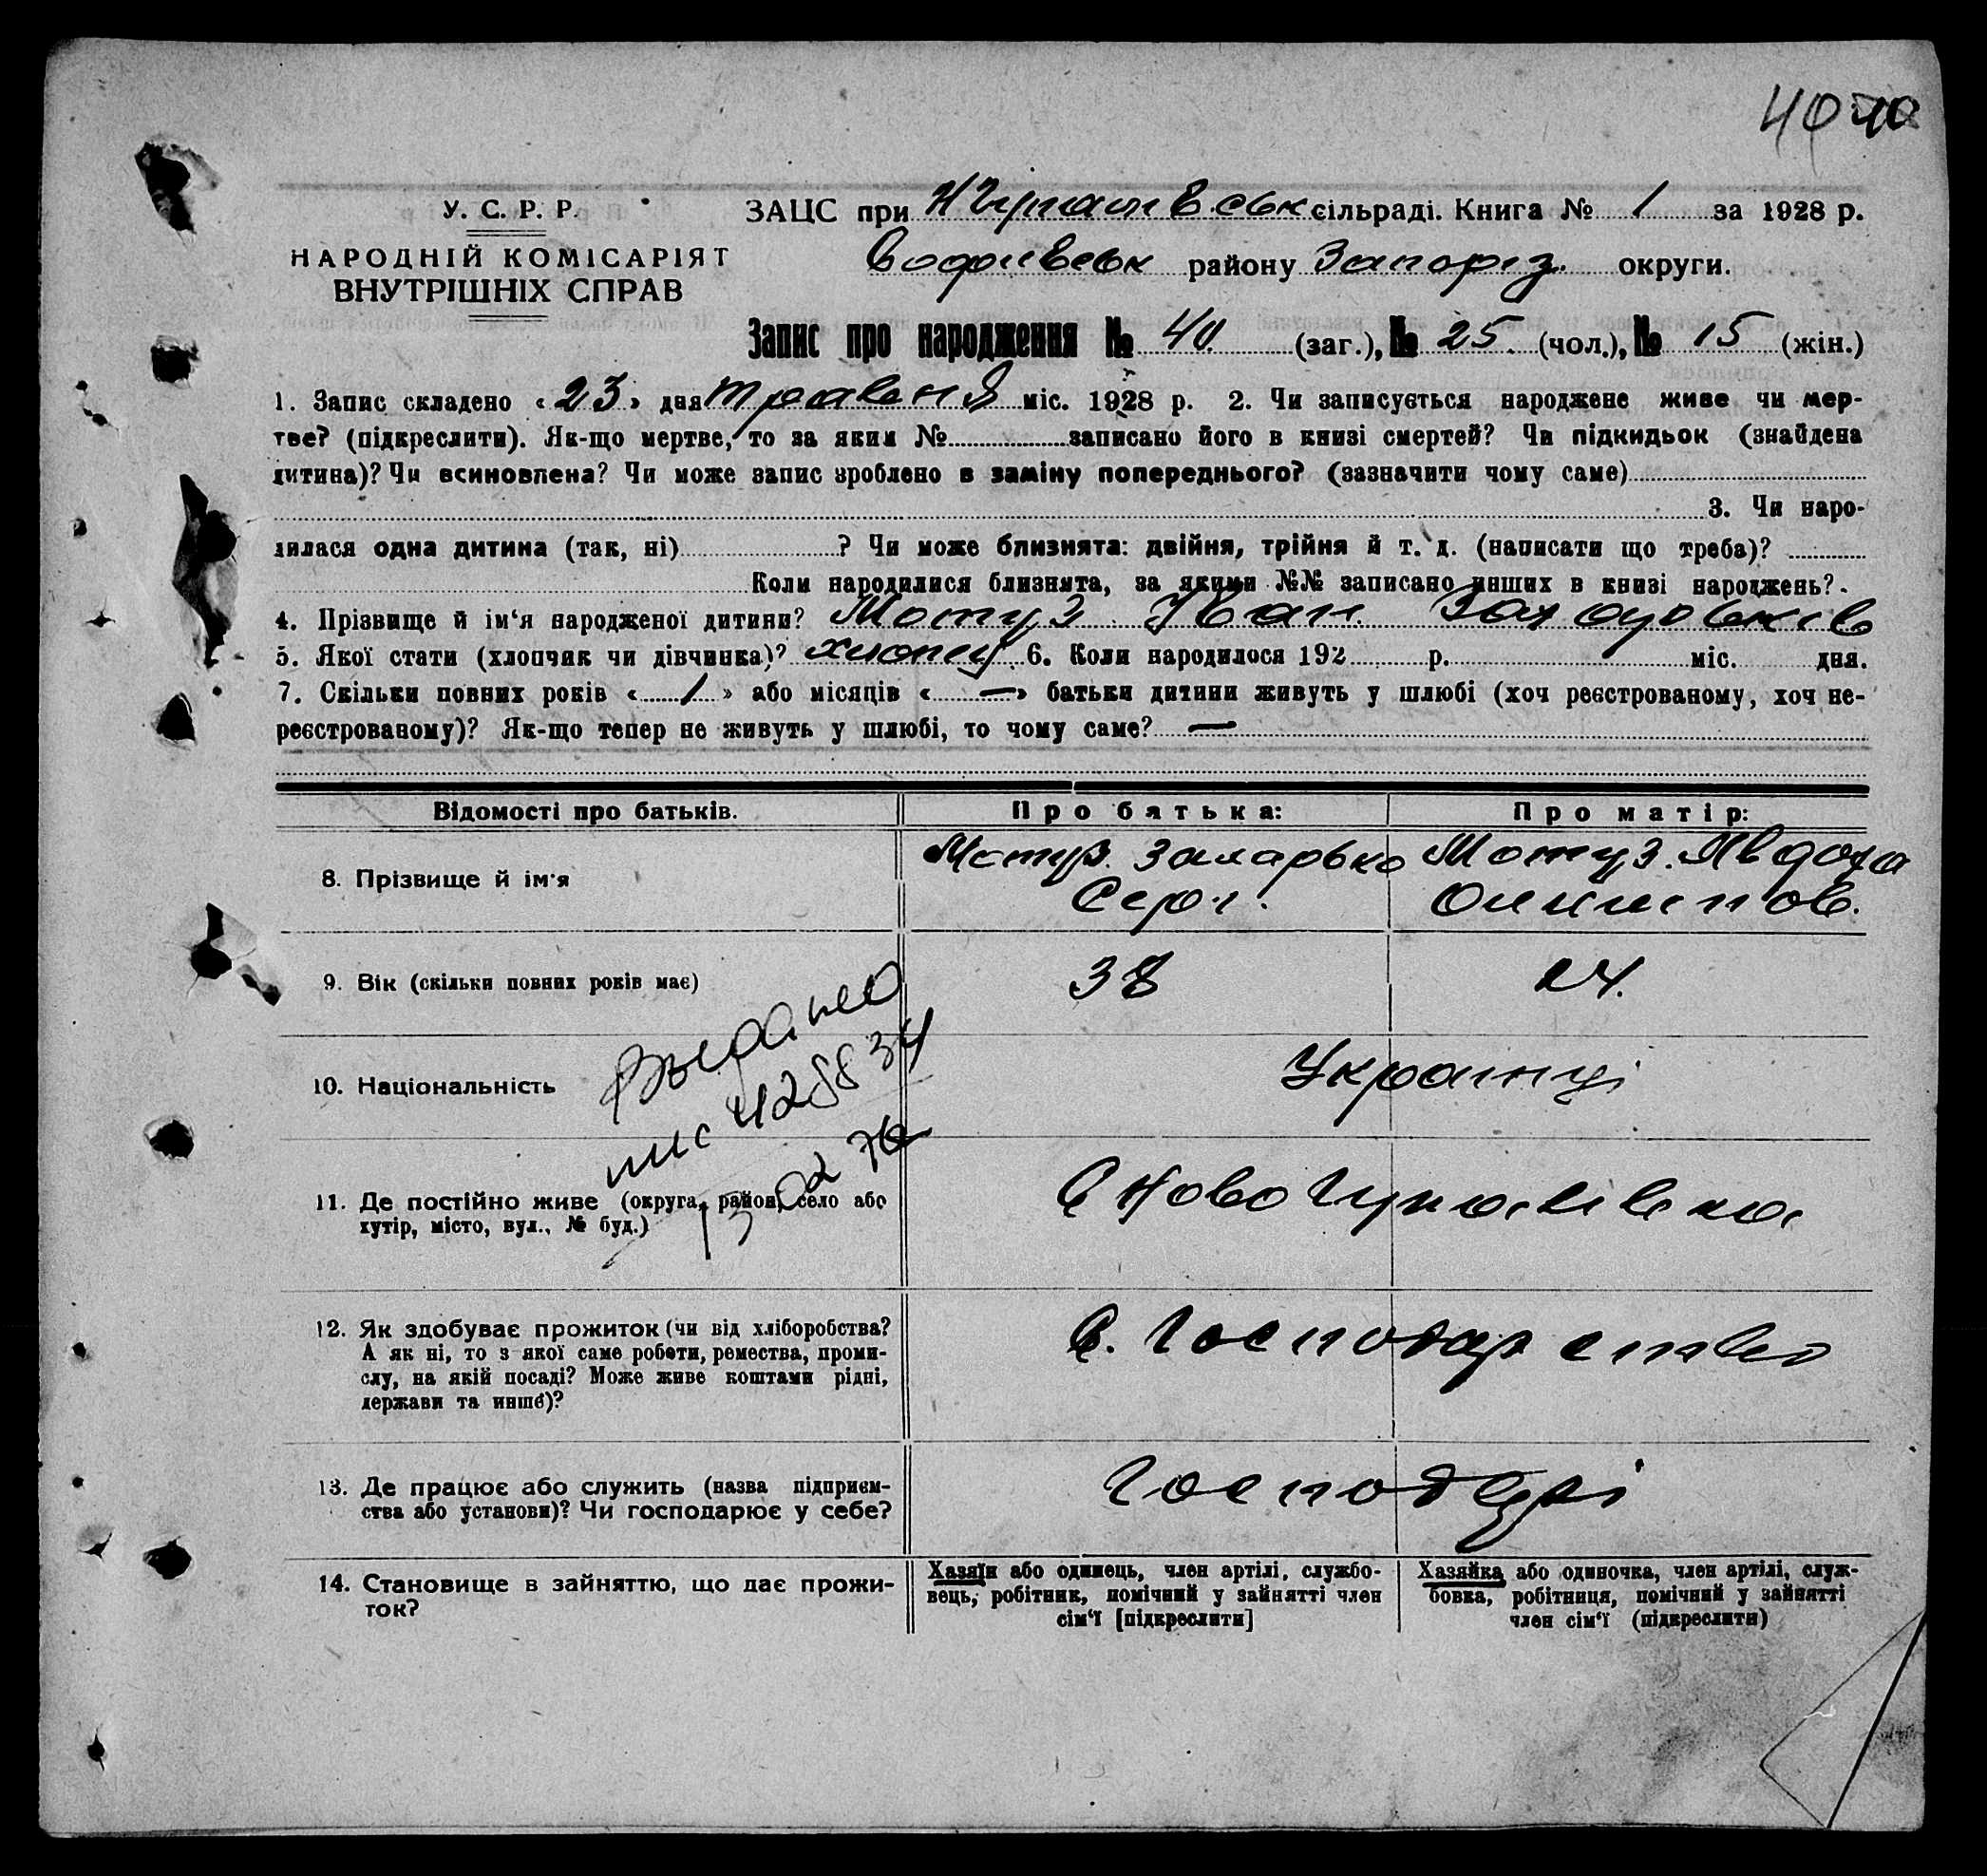 40 40
У. С. Р. Р.
НАРОДНІЙ КОМІСАРІЯТ
ВНУТРІШНІХ СПРАВ
ЗАЦС при сільраді. Книга № 1 за 1928 р.
району Запоріз. округи.
Запис про народження № 40 (заг.), № 25 (чол.), № 15 (жін.)
1. Запис складено «23» дня травеня міс. 1928 р. 2. Чи записується народжене живе чи мер-
тве? (підкреслити). Як-що мертве, то за яким № записано його в книзі смертей? Чи підкидьок (знайдена
дитина)? Чи всиновлена? Чи може запис зроблено в заміну попереднього? (зазначити чому саме)
3. Чи наро-
дилася одна дитина (так, ні) ? Чи може близнята: двійня, трійня й т. д. (написати що треба)?
Коли народилися близнята, за якими №№ записано инших в книзі народжень?
4. Прізвище й ім‘я народженої дитини? Мотуз Іван
5. Якої стати (хлопчик чи дівчинка)? хлопец 6. Коли народилося 192 р. міс. дня.
7. Скільки повних років «1» або місяців «—» батьки дитини живуть у шлюбі (хоч реєстрованому, хоч не-
реєстрованому)? Як-що тепер не живуть у шлюбі, то чому саме? —
Відомості про батьків. Про батька: Про матір:
8. Прізвище й ім'я Мотуз. Захарько Мотуз. Явдоха
Серг.
9. Вік (скільки повних років має) 38 24.
10. Національність Українці
Выдано
428834
13 02 76
11. Де постійно живе (округа, район, село або
хутір, місто, вул., № буд.)
С. Ново
12. Як здобуває прожиток (чи від хліборобства?
А як ні, то з якої саме роботи, ремества, проми-
слу, на якій посаді? Може живе коштами рідні,
держави та инше)?
С. Господарство
13. Де працює або служить (назва підприєм-
ства або установи)? Чи господарює у себе?
Господарі
14. Становище в зайняттю, що дає прожи-
ток?
Хазяїн або одинець, член артілі, службо-
вець, робітник, помічний у зайнятті член
сім‘ї [підкреслити]
Хазяйка або одиночка, член артілі, служ-
бовка, робітниця, помічний у зайнятті
член сім‘ї (підкреслити)